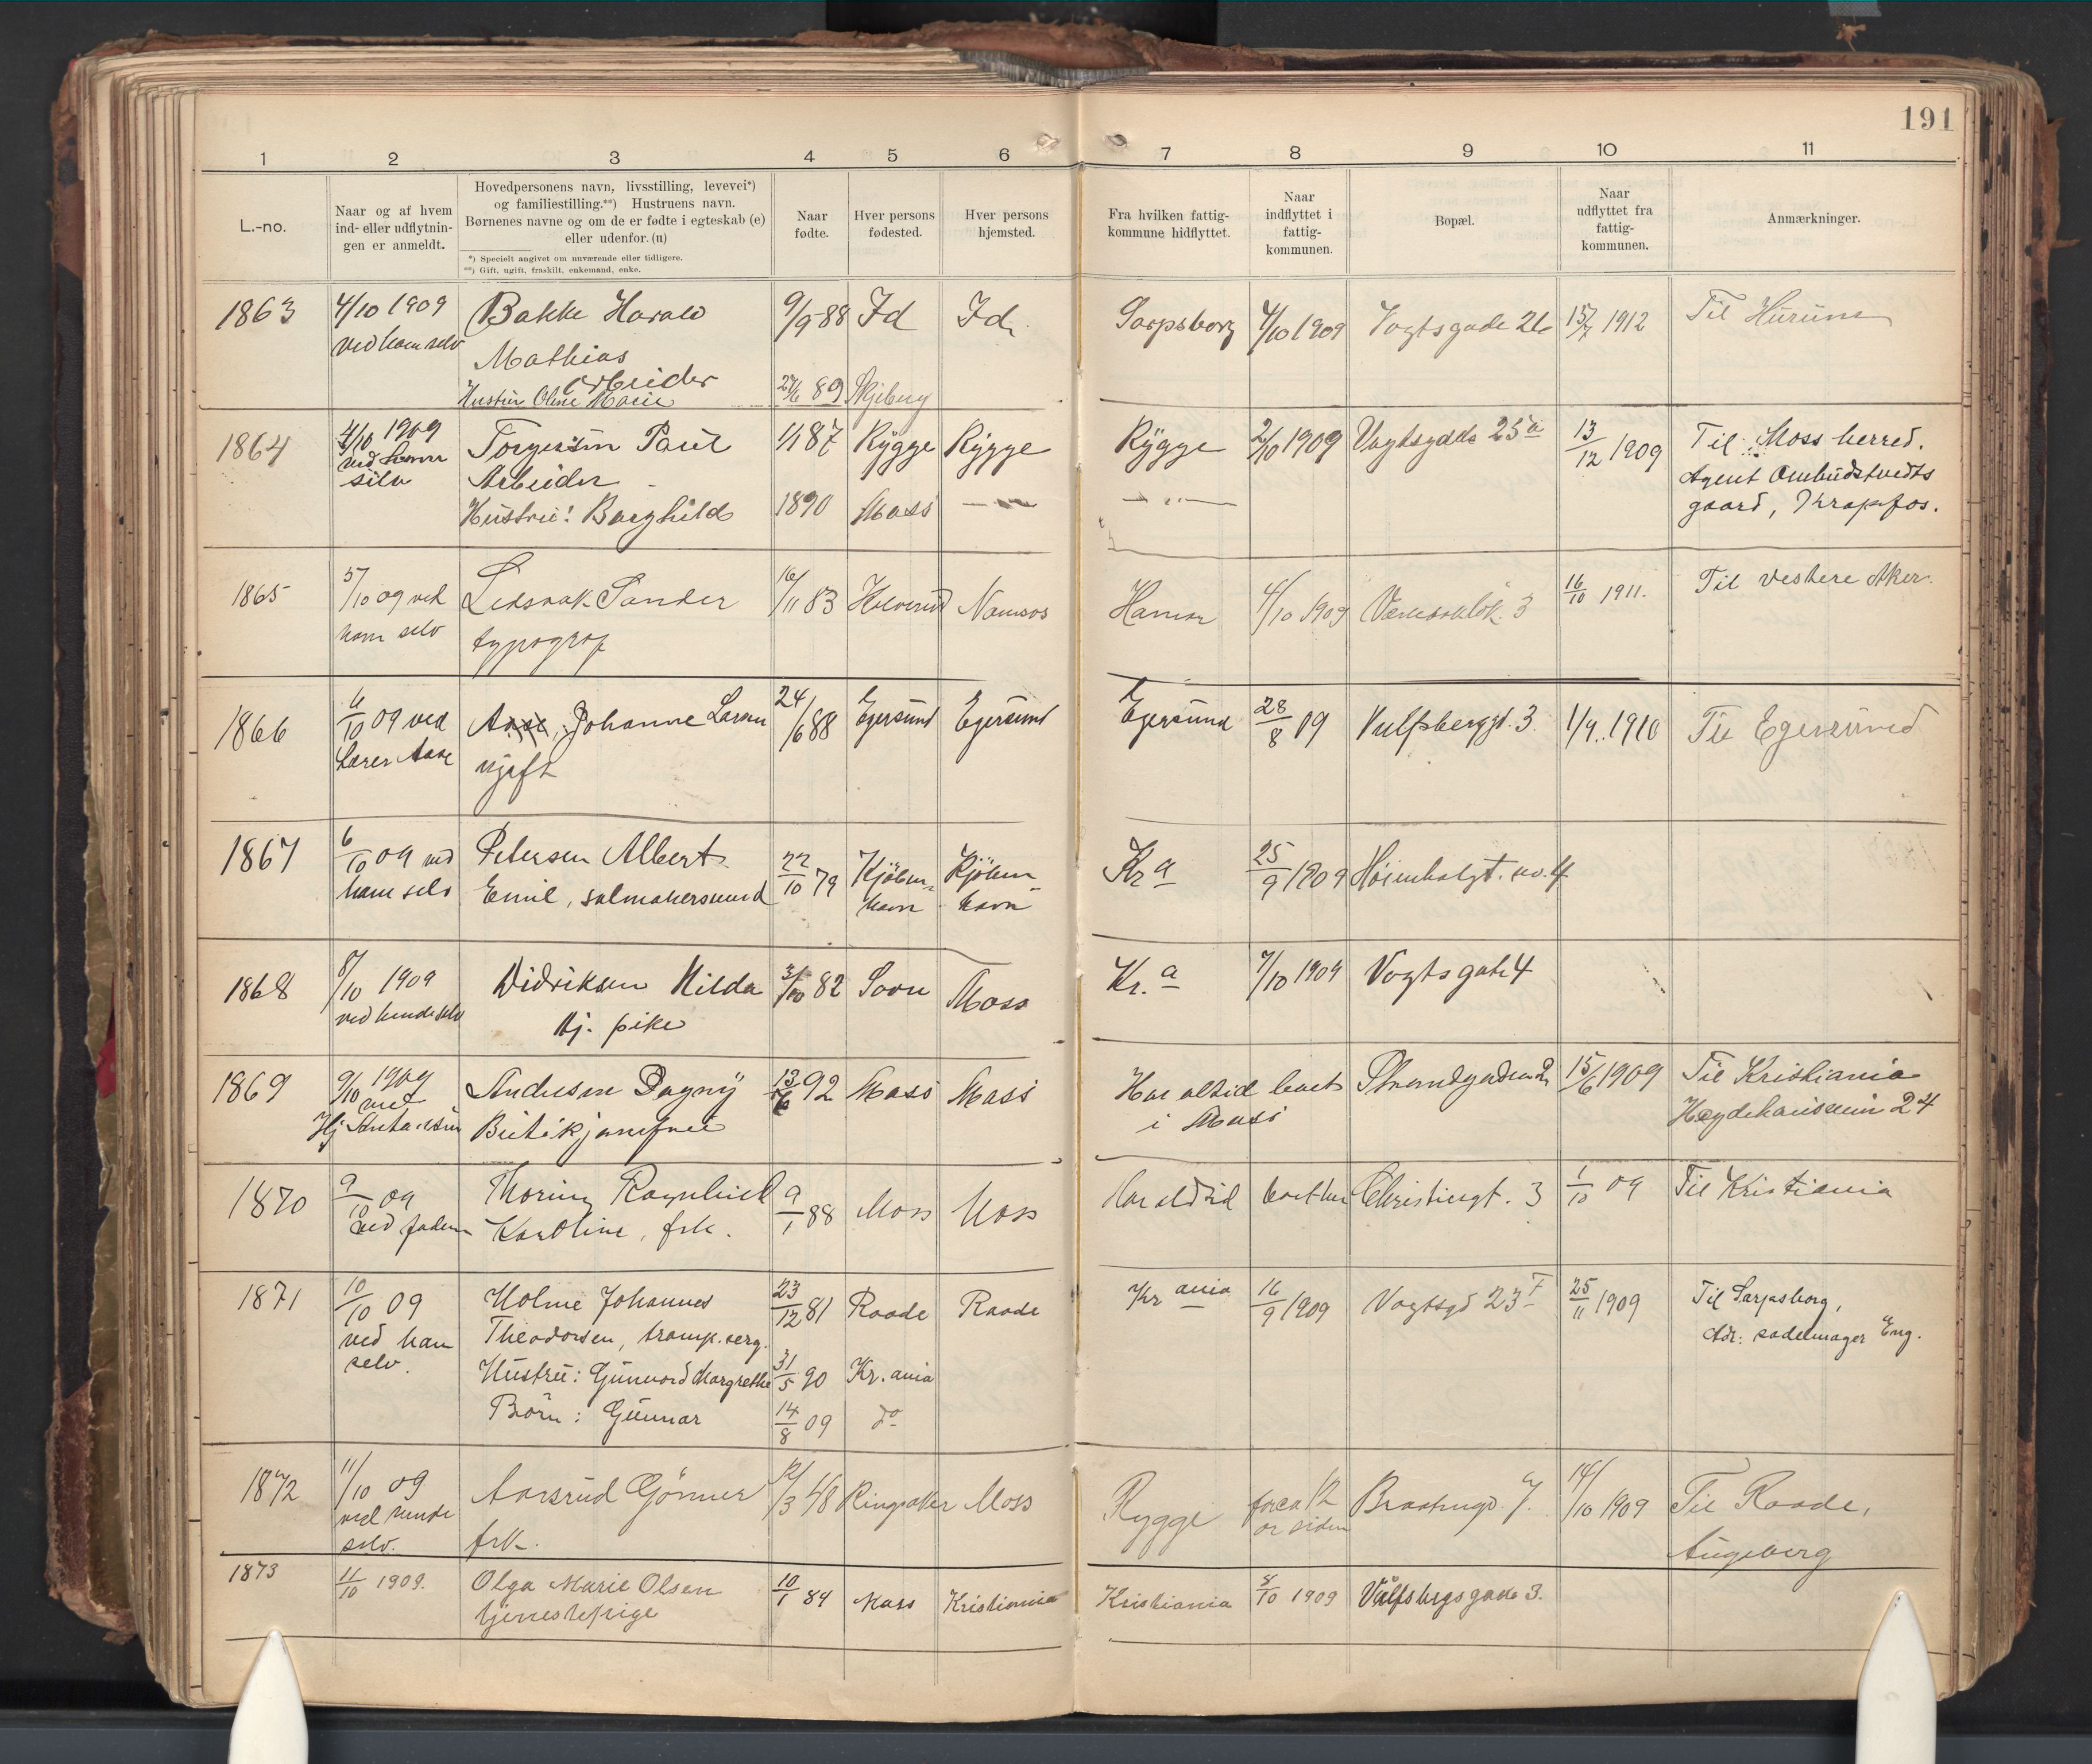 191
1 2 3 4 5 6 7 8 9 10 11
L.-no.
Naar og af hvem
ind- eller udflytnin-
gen er anmeldt.
Hovedpersonens navn, livsstilling, levevei*)
og familiestilling.**) Hustruens navn.
Børnenes navne og om de er fødte i egteskab (e)
eller udenfor. (u)
*) Specielt angivet om nuværende eller tidligere.
**) Gift, ugift, fraskilt, enkemand, enke.
Naar
fødte.
Hver persons
fødested.
Hver persons
hjemsted.
Fra hvilken fattig-
kommune hidflyttet.
Naar
indflyttet i
fattig-
kommunen.
Bopæl.
Naar
udflyttet fra
fattig-
kommunen.
Anmærkninger.
1863 4/10 1909 Bakke Harald 9/9 88 Id Id Sarpsborg 4/10 1909 Vogtsgade 15/7 1912 Til Hurum
ved ham selv Mathias
Arbeider
Hustru Oline Marie 89 Skjeberg
1864 4/10 1909 Torgersen Paul 1/1 87 Rygge Rygge Rygge 2/10 1909 Vogtsgade 25a 13/12 1909 Til Moss herred.
ved ham
selv Arbeider Agent Ombudstvedts
Hustru: Borghild 1890 Moss — " — — " — gaard, Krapfos.
1865 5/10 09 ved Sander 16/11 83 Namsos Hamar 4/10 1909 3 16/10 1911. Til vestre Aker.
ham selv typograf
1866 6/10 09 ved Aase, Johanne Larsen 24/6 88 Egersund Egersund Egersund 28/8 09 Vulfsberggt. 3. 1/9. 1910 Til Egersund
Lærer Aase ugift
1867 6/10 09 ved Petersen Albert 22/10 79 Kjøben- Kjøben- Kr.a 25/9 1909 no. 4
ham selv Emil, salmakersvend havn havn
1868 8/10 1909 Didriksen Hilda 3/10 82 Soon Moss Kr.a 7/10 1909 Vogtsgate 4
ved hende selv tj. pike
1869 9/10 1909 Andersen Dagny 13/6 92 Moss Moss Har altid boet Strandgaden 2 15/6 1909 Til Kristiania
ved
Hj. Butikjomfru i Moss 24
1870 9/10 09 Thoring Ragnhild 9/1 88 Moss Moss Har altid boet her Christiesgt. 3 1/10 09 Til Kristiania
ved faderen Karoline, frk.
1871 10/10 09 Holme Johannes 23/12 81 Raade Raade Kr.ania 16/9 1909 Vogtsgd 23 25/11 1909 Til Sarpsborg,
ved ham Theodorsen, tramp. serg. Adr: sadelmager Eng.
selv. Hustru: Gunvord Margrethe 31/5 90 Kr.ania
Börn: Gunnar 14/8 09 do
1872 11/10 09 Aarsrud Gönner 12/3 48 Ringsaker Moss Rygge 7. 14/10 1909 Til Raade,
ved hende
selv. frk. Augeberg
1873 11/10 1909. Olga Marie Olsen 10/1 84 Moss Kristiania Kristiania 8/10 1909 Vålfsbergsgade 3.
tjenestepige